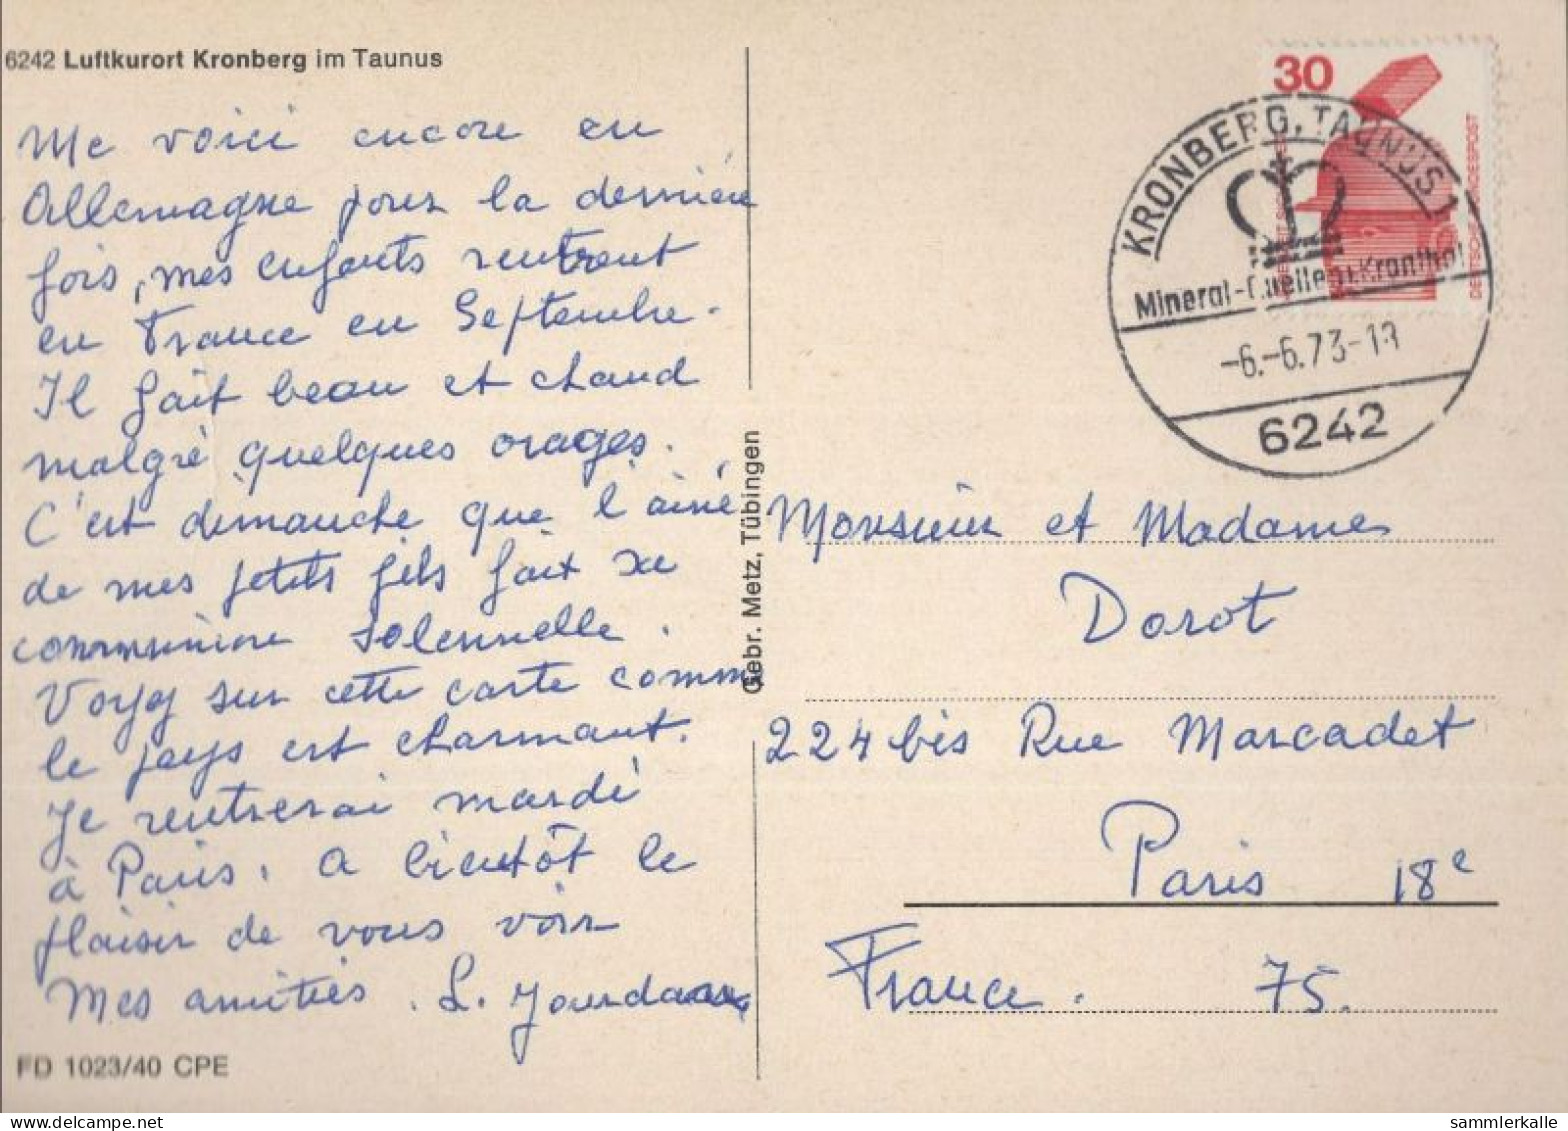 6242 Luftkurort Kronberg im Taunus
Me voici encore en
Allemagne pour la dernière
fois, mes enfants rentrent
en France en Septembre.
Il fait beau et chaud
malgré quelques orages.
C'est dimanche que l'ainé
de mes petits fils fait sa
communion solennelle.
Voyez sur cette carte comme
le pays est charmant.
Je rentrerai mardi
à Paris. A bientôt le
plaisir de vous voir
Mes amitiés. L. Jourdain
FD 1023/40 CPE
Gebr. Metz, Tübingen
30
DEUTSCHE BUNDESPOST
KRONBERG, TAUNUS 1
Mineral-Quellen Kronthal
-6.-6.73-18
6242
Monsieur et Madame
Dorot
224 bis Rue Marcadet
Paris 18e
France. 75.
sammlerkalle